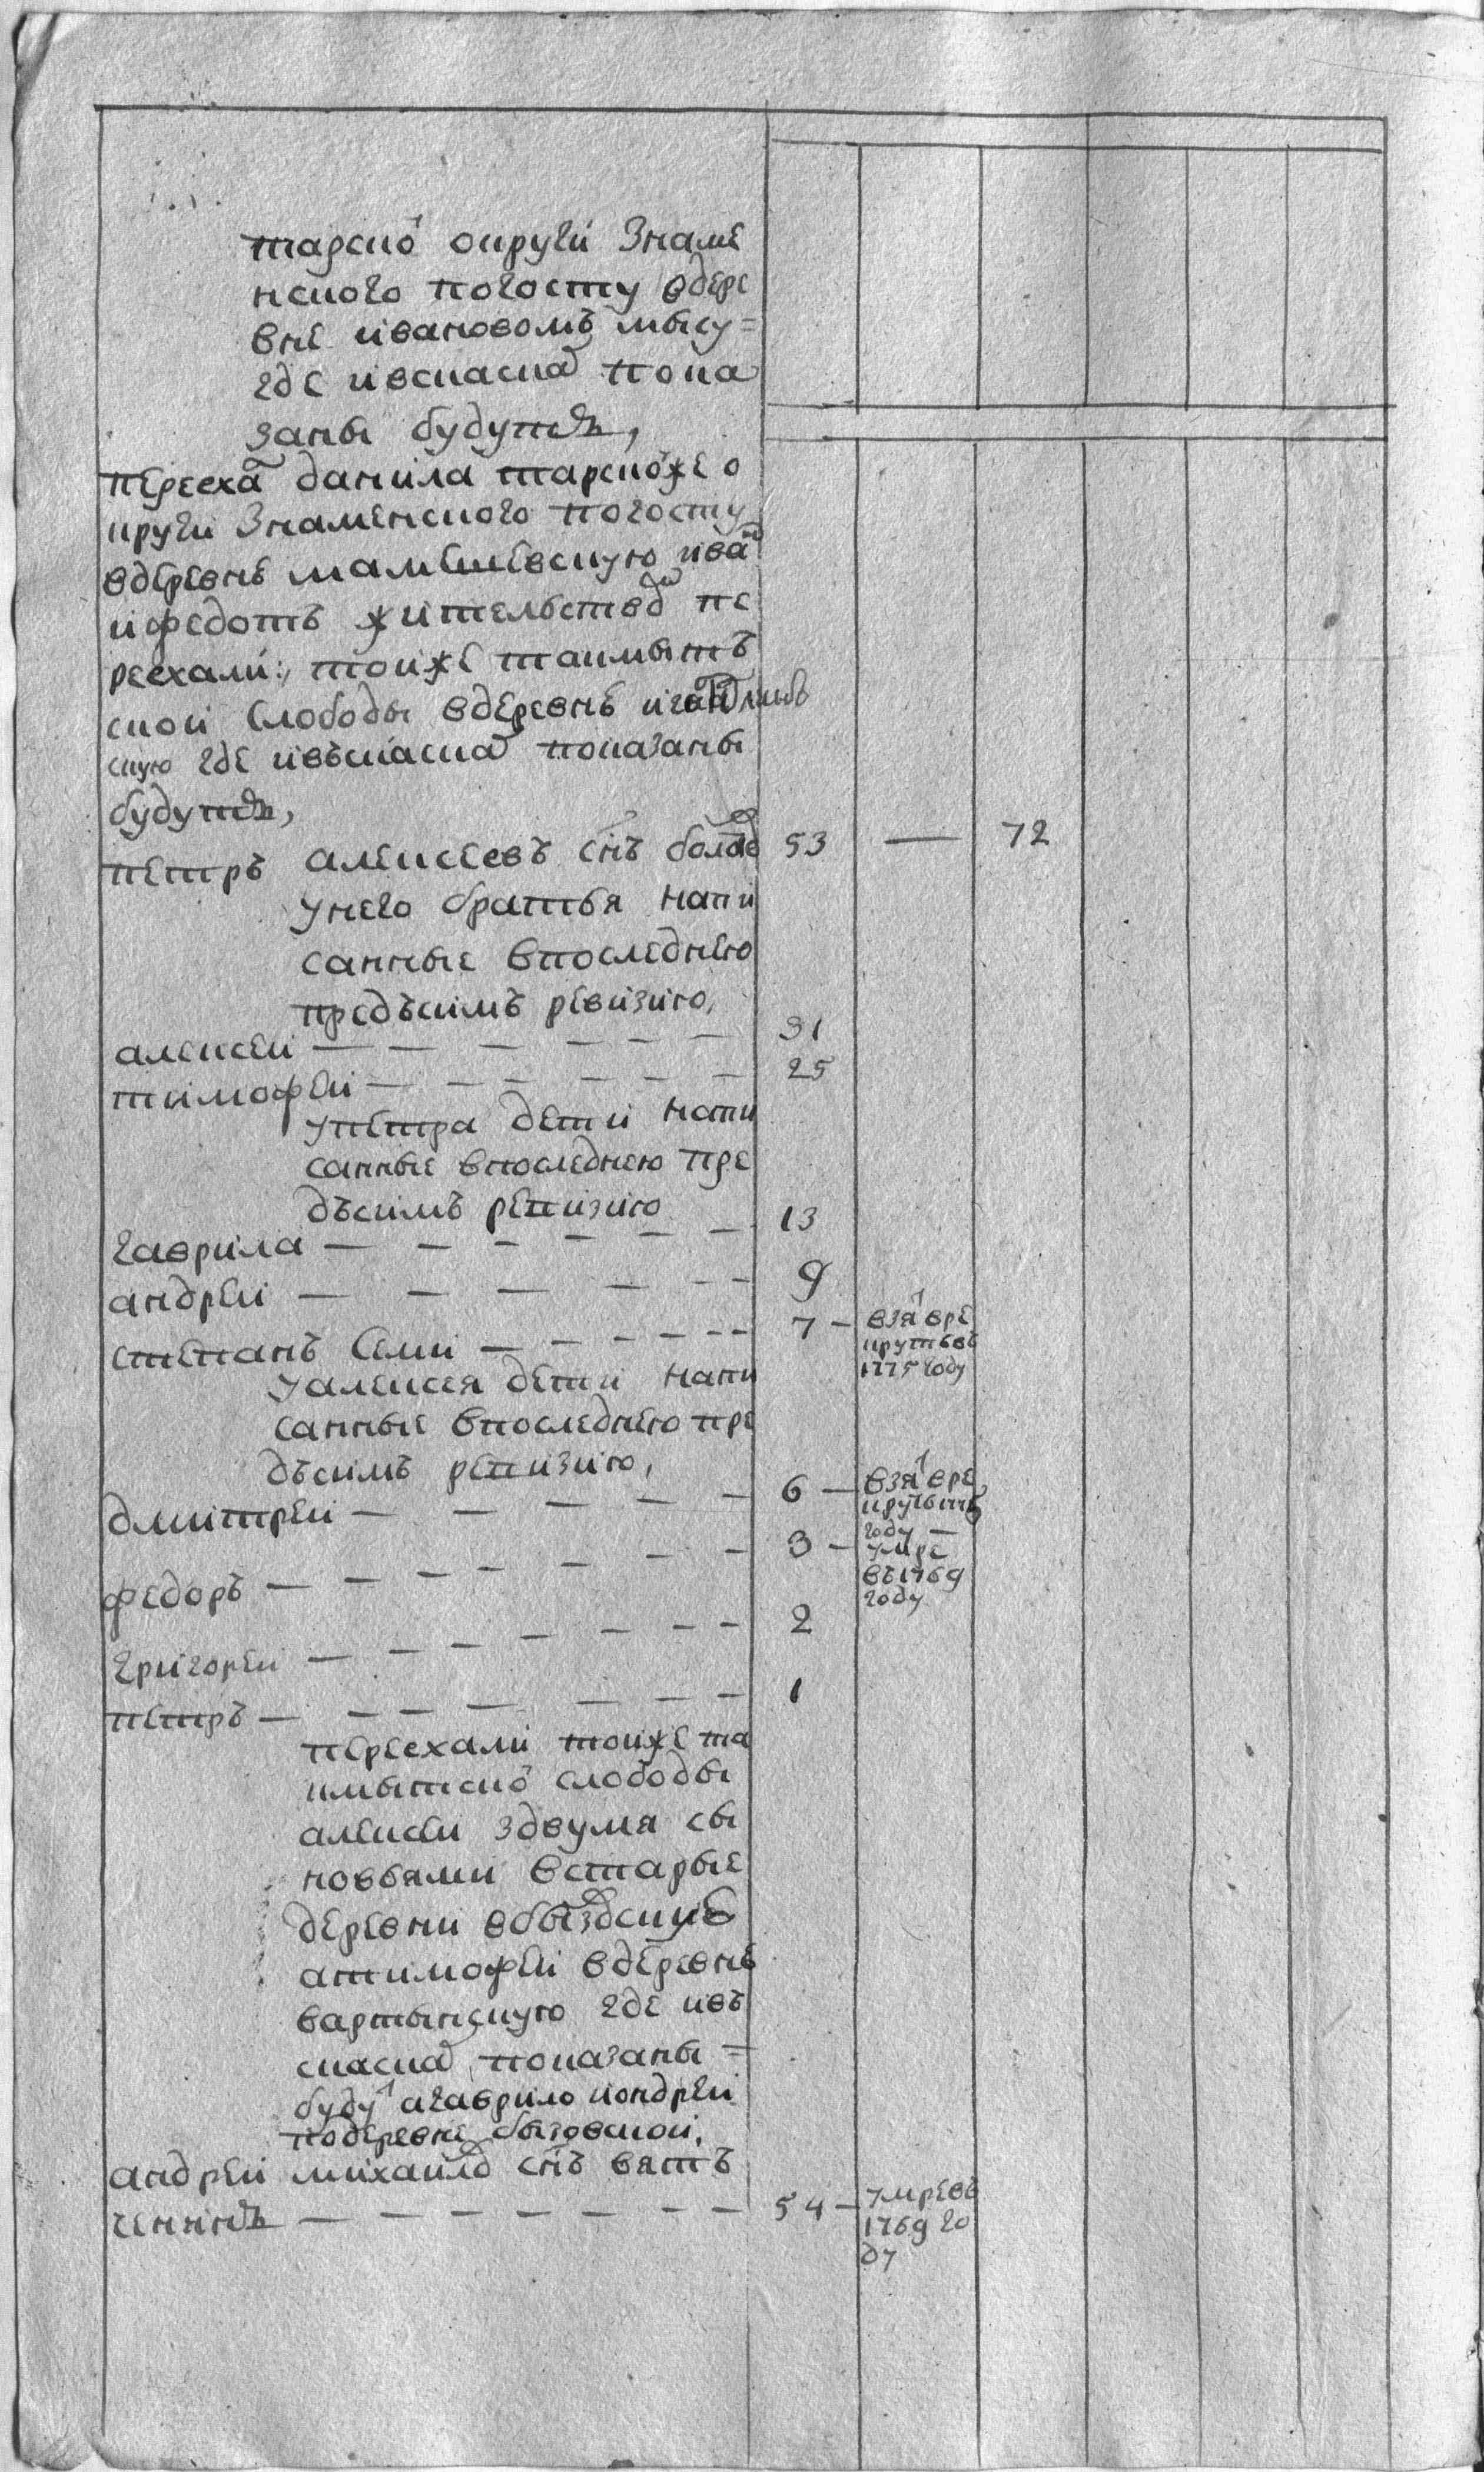 тарско округи Знаме
нского погосту вдере
вне ивановомъ мысу=
где ивскаска пока
заны будутъ,
переехал данила тарскоже о
круги Знаменского погосту
вдеревнѣ мамешевскую иван
ифедотъ жительством пе
реехали: тоиже таимытъ
скои Слободы вдеревнѣ
скую где ивъскаска показаны
будутъ,
петръ алексеевъ снъ 53 — 72
унего братья напи
санные впоследнею
предъсимъ ревизию,
алексеи — — — — — — 31
тимофеи — — — — — — 25
упетра дети напи
санные впоследнею пре
дъсимъ ревизию
гаврила — — — — — — 13
андреи — — — — — — 9
степанъ Семи — — — — — — 7 — взят вре
круты въ
1775 году
уалексея дети напи
санные впоследнею пре
дъсимъ ревизию,
дмитреи — — — — — 6 — взят вре
круты
году —
федоръ — — — — — — — 3 — умре
въ 1769
году
григореи — — — — — — — 2
петръ — — — — — — — 1
переехали тоиже та
имытско слободы
алексеи здвумя сы
новьями встарые
деревни
атимофеи вдеревнѣ
вартынскую где ивъ
скаска показаны =
будут агаврило иондреи
подеревне бызовскои.
андреи михаило снъ вятъ
ченинъ — — — — — — — 54 — умревъ
1769 го
ду